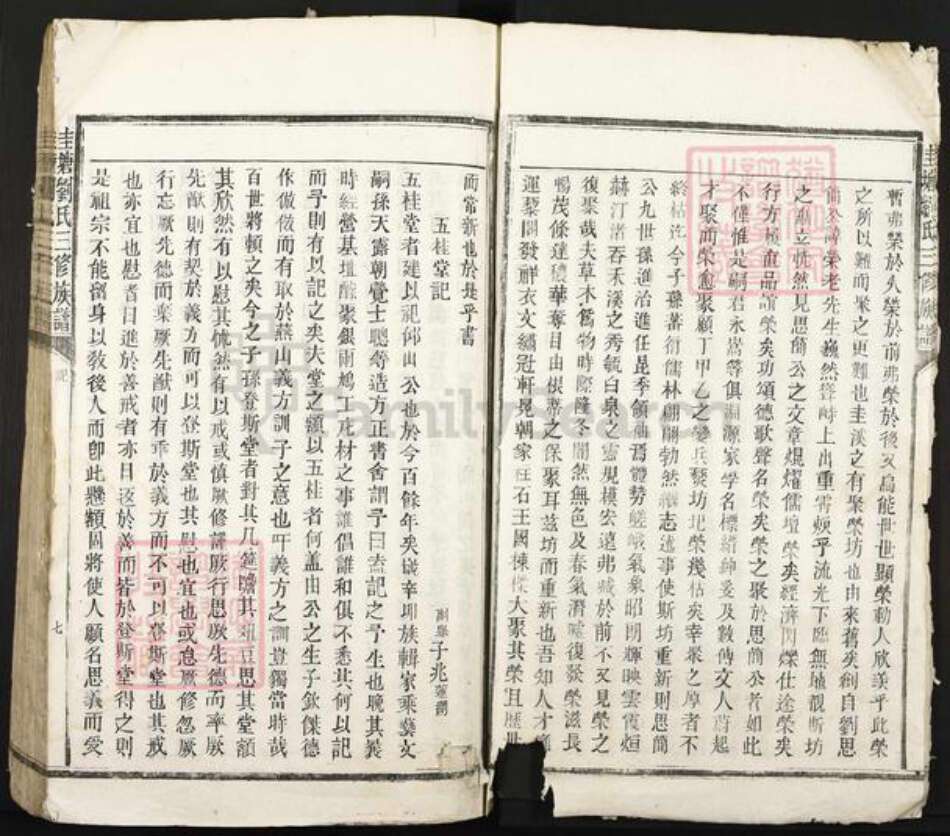 暫弗榮於久榮於前弗榮於後又烏能世世顯榮動人欣羨乎此榮
之所以難而聚之更難也圭溪之有聚榮坊也由來舊矣創自劉思
簡榮老先生巍然聳峙上出重霄頫乎流光下臨無地觀斯坊
之矗立恍然見思簡公之文章焜燿儒壇榮矣經濟閃爍仕途榮矣
行方極直品謂榮矣功頌德歌聲名榮矣榮之聚於思簡公者如此
不僅惟是嗣君永嵩等俱淵源家學名標縉紳爰及數傳文人蔚起
才聚而榮愈聚顧丁甲乙之變兵燹坊圮榮幾枯矣幸聚之厚者不
終枯迄今子孫蕃衍儒林翩翩勃然繼志述事使斯坊重新則思簡
公九世孫進治進任昆季領袖焉體勢嵯峨氣象昭朗輝映雲霞烜
赫汀渚吞禾溪之秀毓白泉之靈規模宏遠弗戚於前不又見榮之
復聚哉夫草木爲物時際隆冬闇然無色及春氣潛噓復發榮滋長
暢茂條達穠華奪目由根蒂之保聚耳茲坊而重新也吾知人才應
運蔾開發祥衣文繡冠軒冕朝家柱石王國棟樑大聚其榮且歷世
而常新也於是乎書
五桂堂記
嗣孫子兆
五桂堂者建以祀仰山公也於今百餘年矣歲辛卯族輯家乘藝文
嗣孫天露朝覺士聰等造方正書舍謂予曰盍記之予生也晚其曩
時經營基壇醵聚銀兩鳩工庀材之事誰倡誰和俱不悉其何以記
而予則有以記之矣夫堂之額以五桂者何蓋由公之生子欽傑德
休傲儆而有取於燕山義方訓子之意也吁義方之訓豈獨當時哉
百世將頼之矣今之子孫登斯堂者對其几筵瞻其俎豆思其堂額
其欣然有以慰其怵然有以戒或慎厥修謹厥行思厥先德而率厥
先猷則有契於義方而可以登斯堂也其慰也宜也或怠厥修忽厥
行忘厥先德而棄厥先猷則有乖於義方而不可以登斯堂也其戒
也亦宜也慰者日進於善戒者亦日返於善而皆於登斯堂得之則
是祖宗不能留身以教後人而即此懸額固將使人顧名思義而愛
圭塘劉氏三修族譜
記
七
FamilySearch